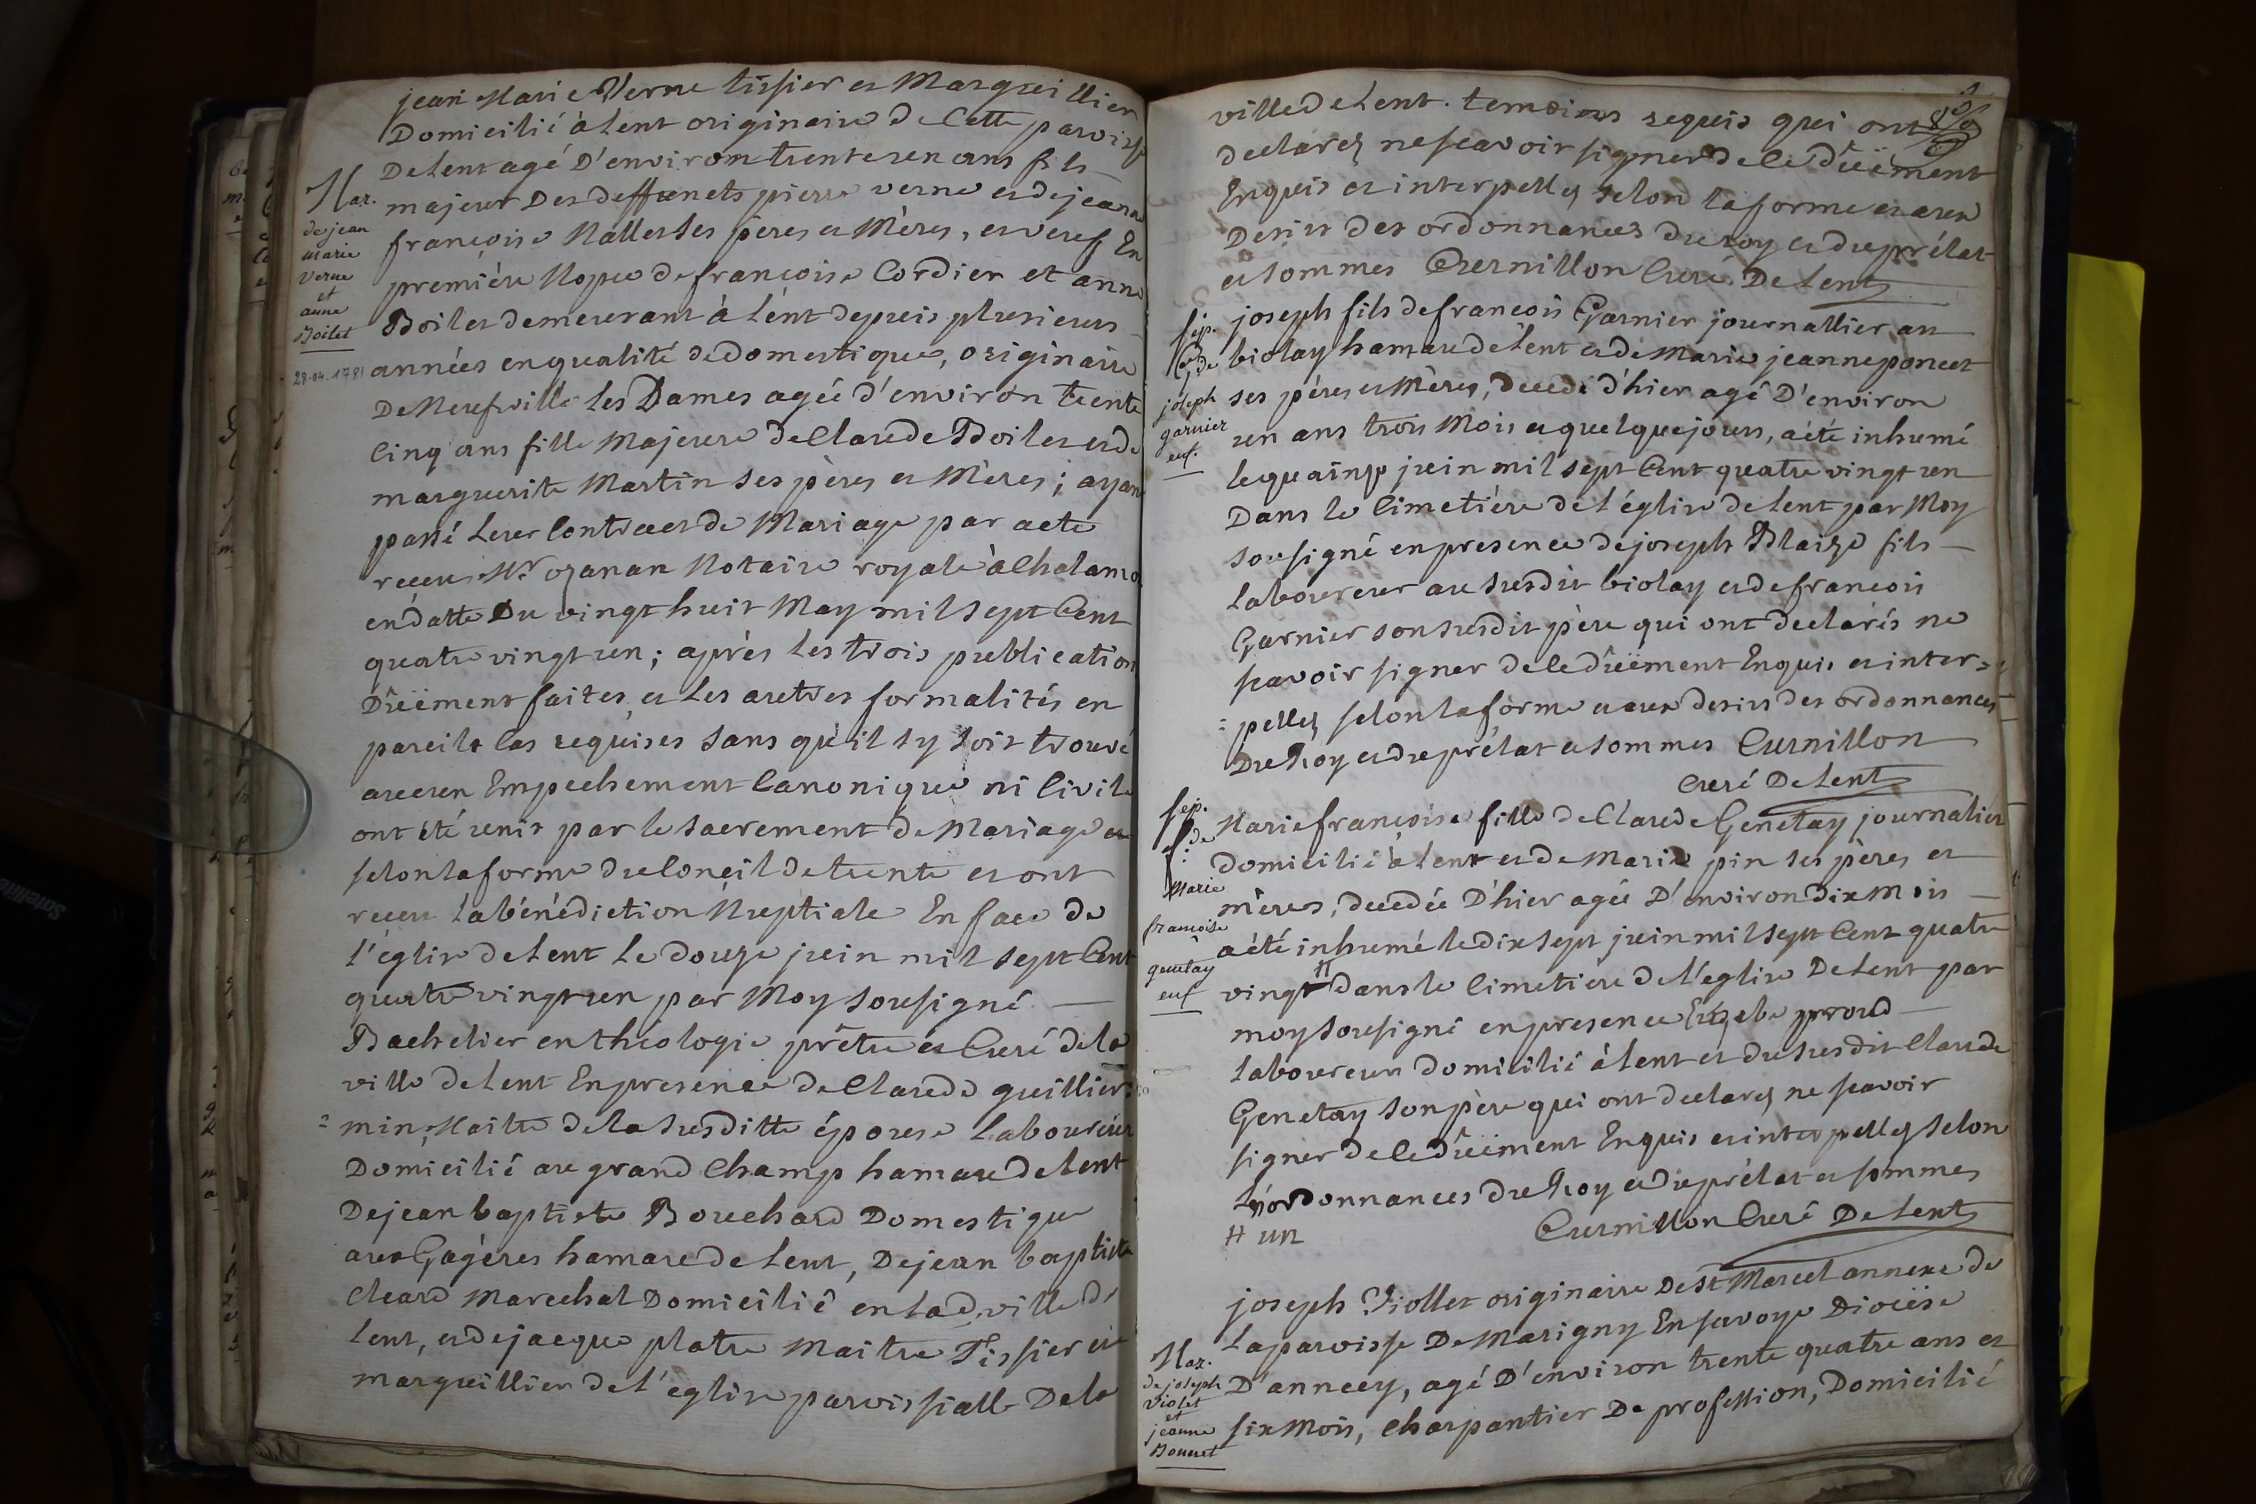 jean Marie Verne tissier et Marguillier
Domicilié à Lent originaire de Cette paroisse
De Lent agé D'environ trente un ans fils
Mar.
de jean
marie
verne
et
anne
Boilet
28-04-1781
majeur Des deffunets pierre verne et de jeanne
françoise Nallet ses pères et Mères, et veuf En
première Nopce de françoise Cordier et anne
Boilet demeurant à Lent depuis plusieurs
années en qualité de domestique, originaire
De Neufville Les Dames agée d'environ trente
Cinq ans fille Majeure de Claude Boilet et de
marguerite Martin ses pères et Mères ; ayant
passé Leur Contract de Mariage par acte
receu Mr ozanan Notaire royale à Chalamo
en datte Du vingt huit May mil sept Cent
quatre vingt un ; après Les trois publication
Düëment faites et Les autres formalités en
pareils Cas requises sans qu'il s'y soit trouvé
aucun Empechement Canonique ni Civile
ont été unis par le sacrement de Mariage et
selon la forme du Concil de trente et ont
receu La bénédiction Nuptiale En face de
l'église de Lent Le douze juin mil sept Cent
quatre vingt un par Moy sousigné
Bachelier en théologie prêtre et Curé de la
ville de Lent En presence de Claude guillier=
=min Maitre de la susditte épouse Laboureur
Domicilié au grand Champ hamau de Lent
De jean baptiste Bouchard Domestique
aux Gagères hamau de Lent, De jean baptiste
Cleard Marechal Domicilié en Lad. ville de
Lent, et de jacque platre Maitre Tissier et
marguillier de L'église paroissialle De la
ville de Lent. temoins requis qui ont
declarez ne scavoir signer de ce düëment
Enquis et interpellez selon la forme et aux
Desirs des ordonnances du roy et du prélat
et sommes Curnillon Curé De Lent
Sep.
de
joseph
garnier
enf.
joseph fils de francois Garnier journallier au
biolay hamau de Lent et de Marie jeanne poncet
ses pères et Mères, decedé d'hier agé D'environ
un ans trois Mois et quelque jours, a été inhumé
le quainze juin mil sept Cent quatre vingt un
Dans le Cimetière de L'église de Lent par Moy
sousigné en presence de joseph Blaize fils
Laboureur au susdit biolay et de francois
Garnier son susdit père qui ont declarés ne
scavoir signer de ce düëment Enquis et inter=
=pellez selon la forme et aux desirs des ordonnances
Du Roy et du prélat et sommes Curnillon
Curé De Lent
Sep.
de
Marie
francoise
genetay
enf
Marie françoise fille de Claude Genetay journalier
domicilié à Lent et de Marie pin ses pères et
mères, decedée D'hier agée D'environ dix Mois
a été inhumé le dix sept juin mil sept Cent quatre
vingt # dans le Cimetière de L'église De Lent par
moy sousigné en presence proud
Laboureur domicilié à Lent et du susdit Claude
Genetay son père qui ont declarez ne scavoir
signer de ce düëment Enquis et interpellez selon
L'ordonnances du Roy et du prélat et sommes
# un
Curnillon Curé De Lent
Mar.
de joseph
violet
et
jeanne
Bouvet
joseph Violet originaire De St Marcel annexe de
La paroisse De Marigny En savoye Diocèse
D'annecy, agé D'environ trente quatre ans et
six Mois, Charpantier De profession, Domicilié